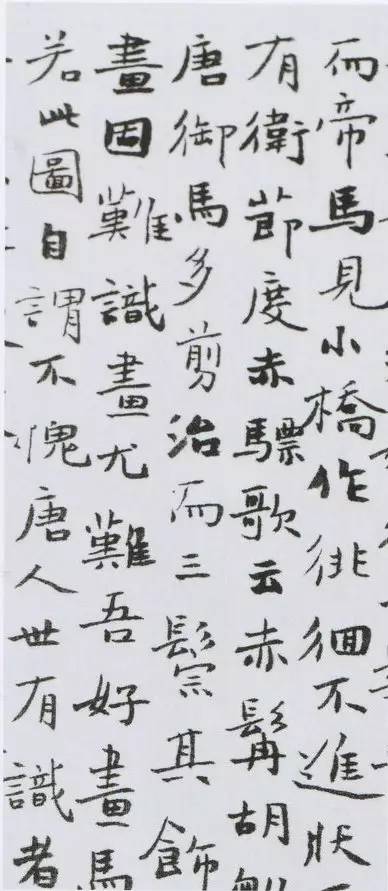 而帝馬見小橋作徘徊不進狀
有衛節度赤驃歌云赤髯胡
唐御馬多剪治而三鬃其飾
畫固難識畫尤難吾好畫馬
若此圖自謂不愧唐人世有識者